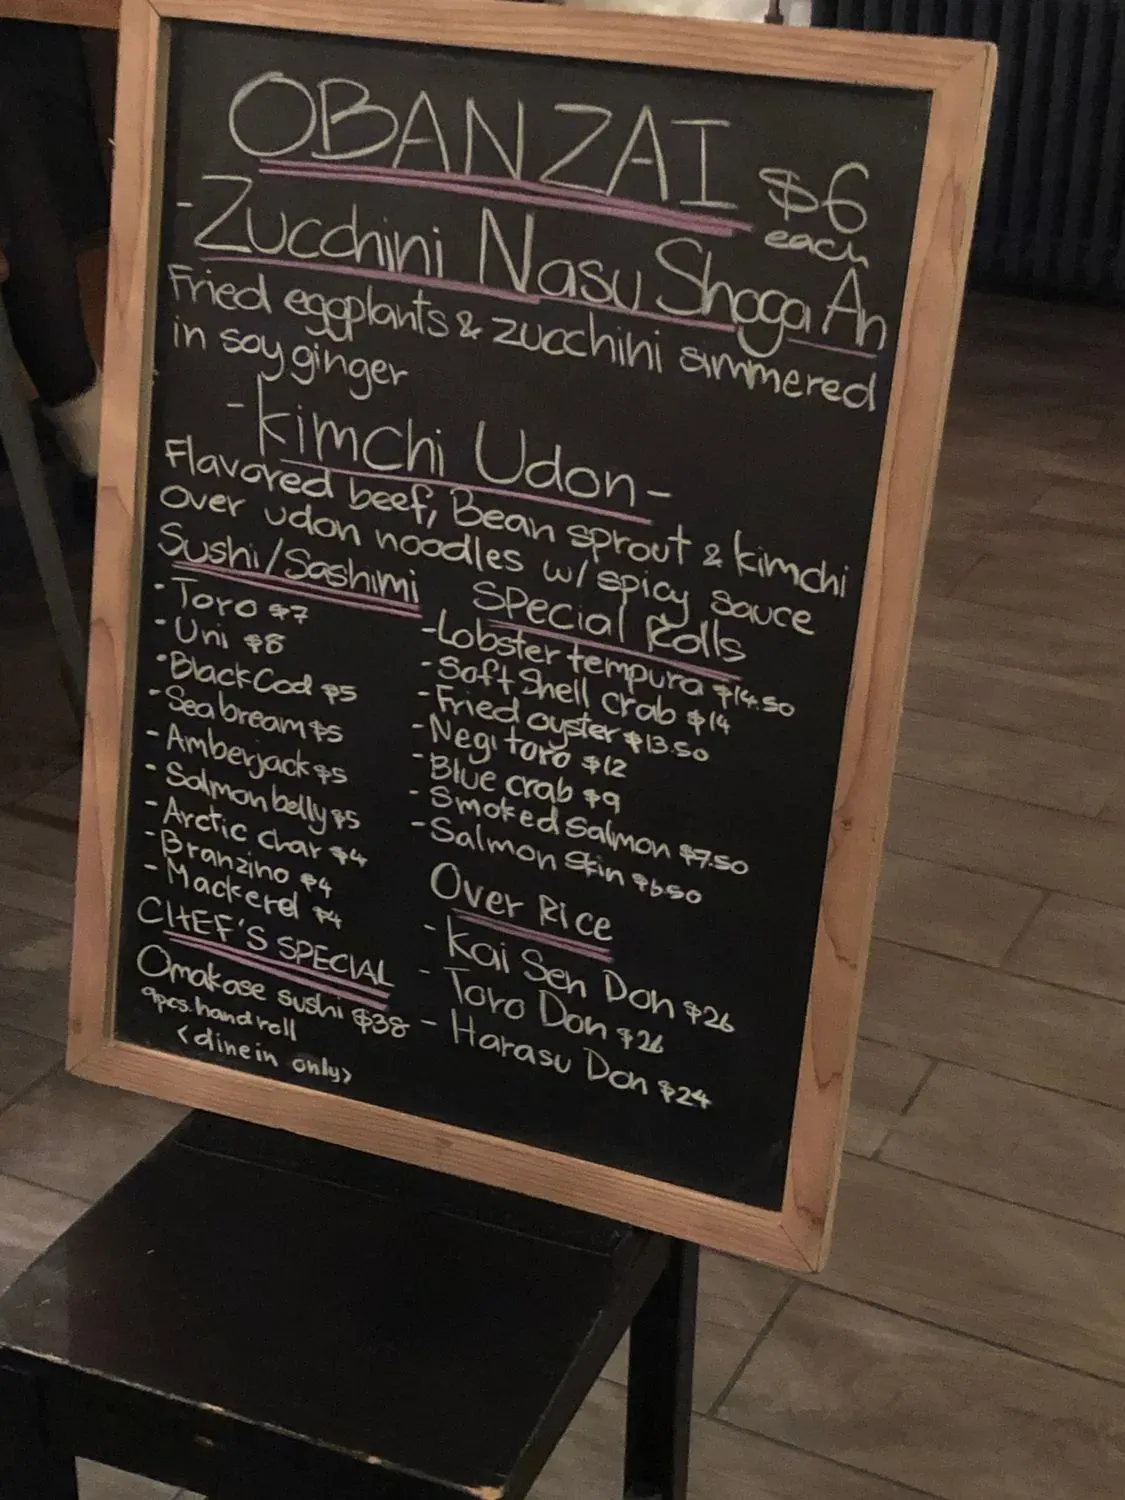 OBANZAI $6 each
-Zucchini Nasu Shoga An
Fried eggplants & zucchini simmered
in soy ginger
-Kimchi Udon-
Flavored beef, Bean sprout & kimchi
over udon noodles w/ spicy sauce
Sushi/Sashimi
- Toro $7
- Uni $8
- Black Cod $5
- Sea bream $5
- Amberjack $5
- Salmon belly $5
- Arctic char $4
- Branzino $4
- Mackerel $4
CHEF'S SPECIAL
Omakase sushi $38
9pcs. hand roll
<dine in only>
Special Rolls
-Lobster tempura $14.50
-Soft Shell crab $14
-Fried oyster $13.50
-Negi toro $12
-Blue crab $9
-Smoked Salmon $7.50
-Salmon Skin $6.50
Over Rice
- Kai Sen Don $26
- Toro Don $26
- Harasu Don $24